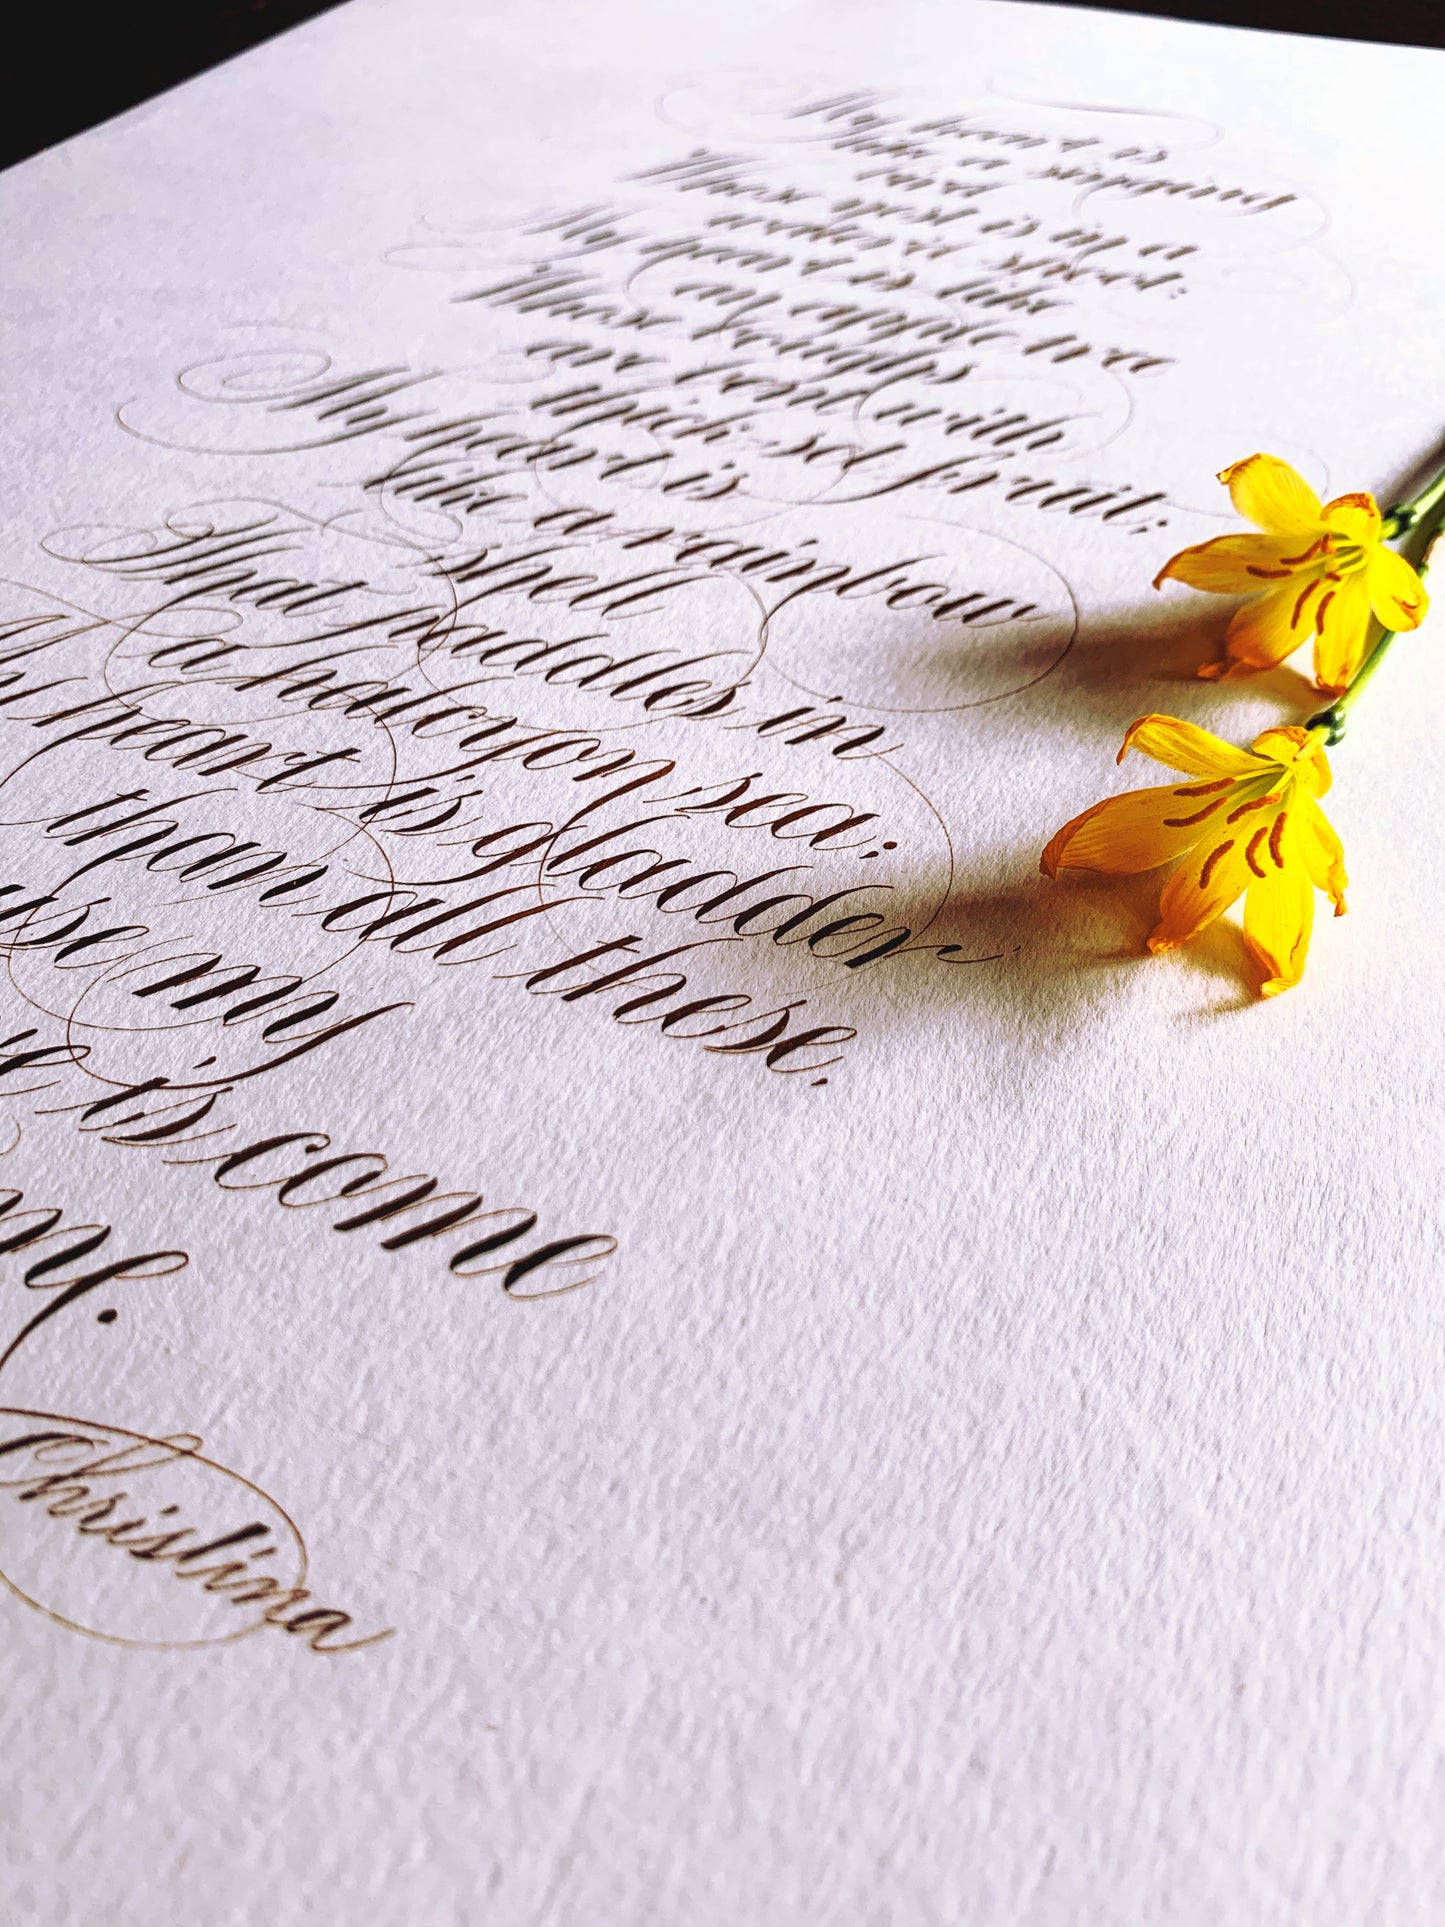 My heart is
like a singing
bird
Whose nest is in a
water'd shoot;
My heart is like
an apple tree
Whose boughs
are bent with
thick-set fruit;
My heart is
like a rainbow
shell
That paddles in
a halcyon sea;
My heart is gladder
than all these
my
is come
me.
Christina